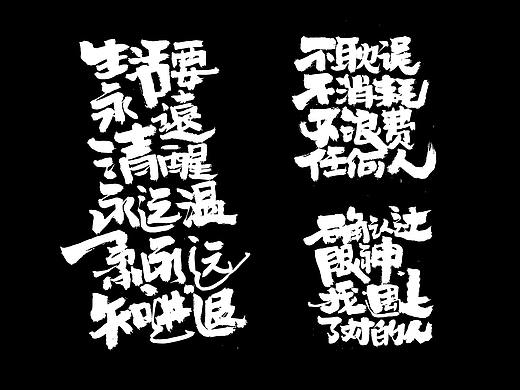 生活要
永遠
清醒
永远温
柔永远
知进退
不耽误
不消耗
不浪费
任何人
确认过
眼神
我遇上
了对的人